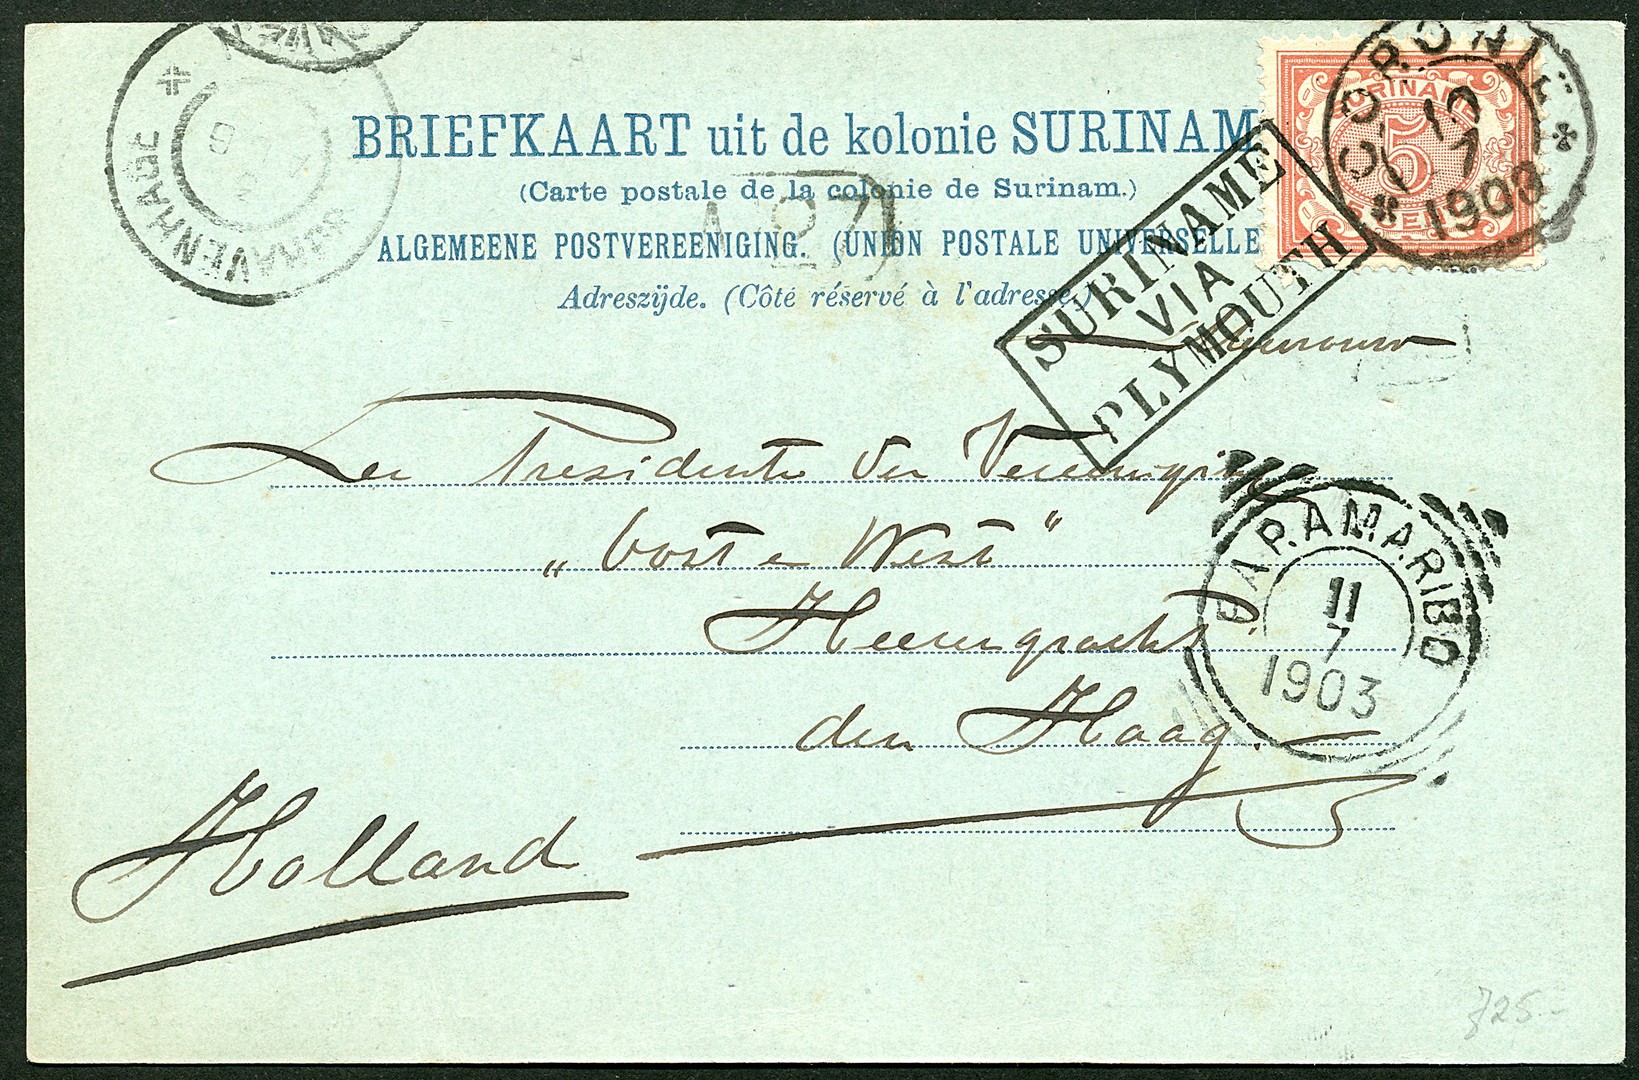 BRIEFKAART uit de kolonie SURINAME
(Carte postale de la colonie de Surinam.)
ALGEMEENE POSTVEREENIGING. (UNION POSTALE UNIVERSELLE
Adreszijde. (Côté réservé à l'adresse.)
'S GRAVENHAGE
SURINAME
5
CENT
CORONIE
10
7
1903
SURINAME
VIA
PLYMOUTH
Mevrouw
De Presidente der Vereeniging
„Oost en West"
Heerengracht
den Haag.
Holland
PARAMARIBO
11
7
1903
725.-